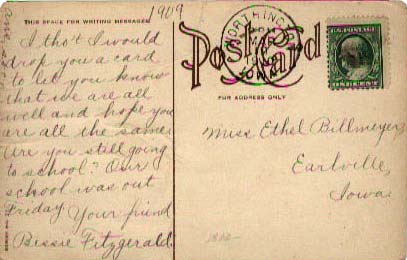 1909
THIS SPACE FOR WRITING MESSAGES
I tho't I would
drop you a card
to let you know
that we are all
well and hope you
are all the same.
Are you still going
to school? Our
school was out
Friday Your friend
Bessie Fitzgerald.
Post Card
FOR ADDRESS ONLY
Miss Ethel Billmeyer,
Earlville,
Iowa.